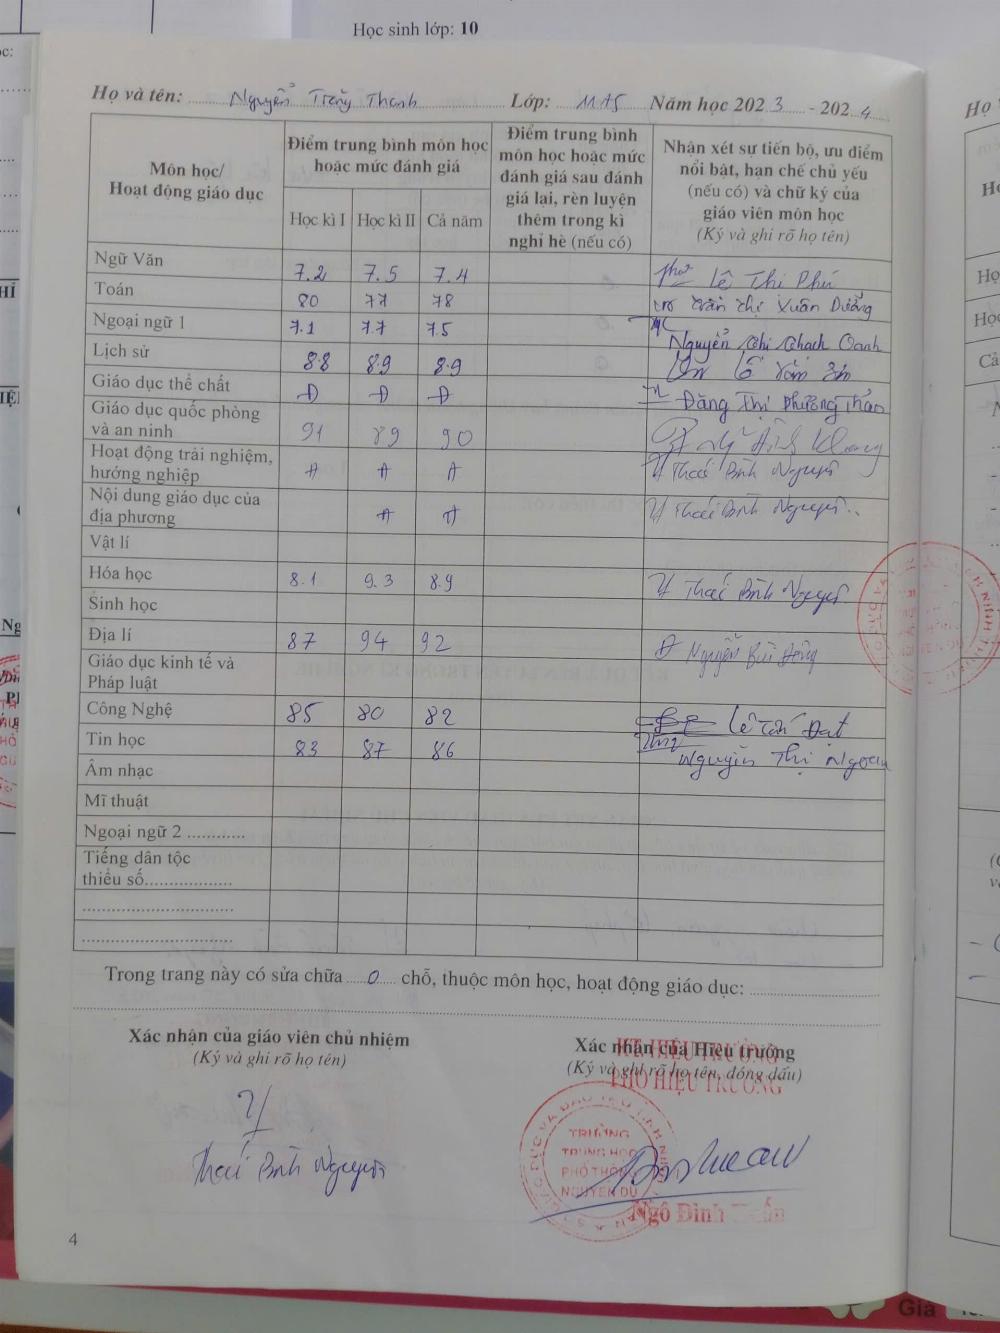 Học sinh lớp: 10
Họ và tên: Nguyễn Trang Thanh Lớp: 11A5 Năm học 2023 - 2024
Môn học/ Hoạt động giáo dục
Điểm trung bình môn học hoặc mức đánh giá
Học kì I Học kì II Cả năm
Điểm trung bình môn học hoặc mức đánh giá sau đánh giá lại, rèn luyện thêm trong kì nghỉ hè (nếu có)
Nhận xét sự tiến bộ, ưu điểm nổi bật, hạn chế chủ yếu (nếu có) và chữ ký của giáo viên môn học
(Ký và ghi rõ họ tên)
Ngữ Văn 7.2 7.5 7.4 Lê Thị Phú
Toán 80 77 78 Trần Thị Xuân Dưỡng
Ngoại ngữ 1 7.1 7.7 7.5 Nguyễn Thị Thạch Oanh
Lịch sử 8.8 8.9 8.9
Giáo dục thể chất Đ Đ Đ Đặng Thị Phương Thảo
Giáo dục quốc phòng và an ninh 91 89 90
Hoạt động trải nghiệm, hướng nghiệp Đ Đ Đ Thái Bình Nguyên
Nội dung giáo dục của địa phương Đ Đ Thái Bình Nguyên
Vật lí
Hóa học 8.1 9.3 8.9 Thái Bình Nguyên
Sinh học
Địa lí 87 94 92 Nguyễn Bùi Đông
Giáo dục kinh tế và Pháp luật
Công Nghệ 85 80 82 Lê Tấn Đạt
Tin học 83 87 86 Nguyễn Thị Ngoan
Âm nhạc
Mĩ thuật
Ngoại ngữ 2
Tiếng dân tộc thiểu số
Trong trang này có sửa chữa 0 chỗ, thuộc môn học, hoạt động giáo dục:
Xác nhận của giáo viên chủ nhiệm
(Ký và ghi rõ họ tên)
Thái Bình Nguyên
Xác nhận của Hiệu trưởng
(Ký và ghi rõ họ tên, đóng dấu)
KT. HIỆU TRƯỞNG
PHÓ HIỆU TRƯỞNG
TRƯỜNG
TRUNG HỌC
PHỔ THÔNG
NGUYỄN DU
Ngô Đình
4